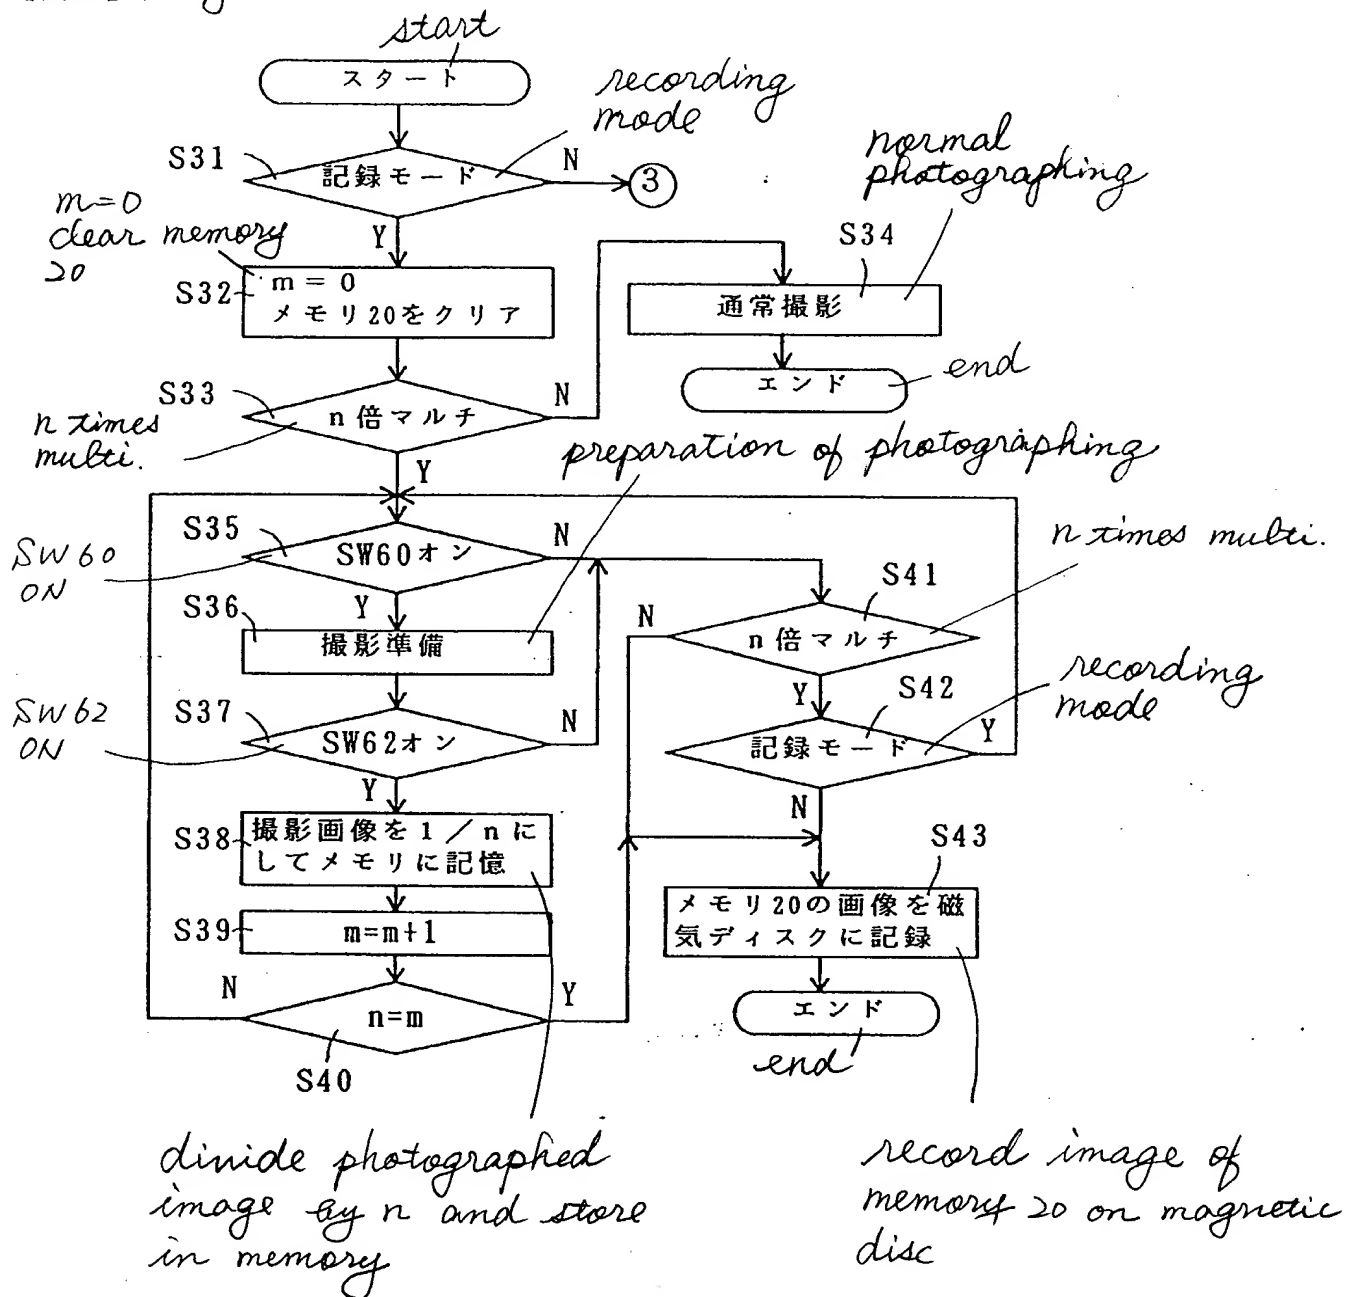 start
スタート
recording
mode
S31
記録モード
N
③
normal
photographing
m=0
clear memory
20
Y
S32
m = 0
メモリ20をクリア
S34
通常撮影
エンド
end
S33
n倍マルチ
N
n times
multi.
Y
preparation of photographing
S35
SW60オン
N
SW60
ON
n times multi.
S41
n倍マルチ
N
Y
S36
撮影準備
Y
S42
記録モード
Y
recording
mode
S37
SW62オン
N
SW62
ON
Y
N
S38
撮影画像を1/nに
してメモリに記憶
S43
メモリ20の画像を磁
気ディスクに記録
S39
m=m+1
N
n=m
Y
S40
エンド
end
divide photographed
image by n and store
in memory
record image of
memory 20 on magnetic
disc